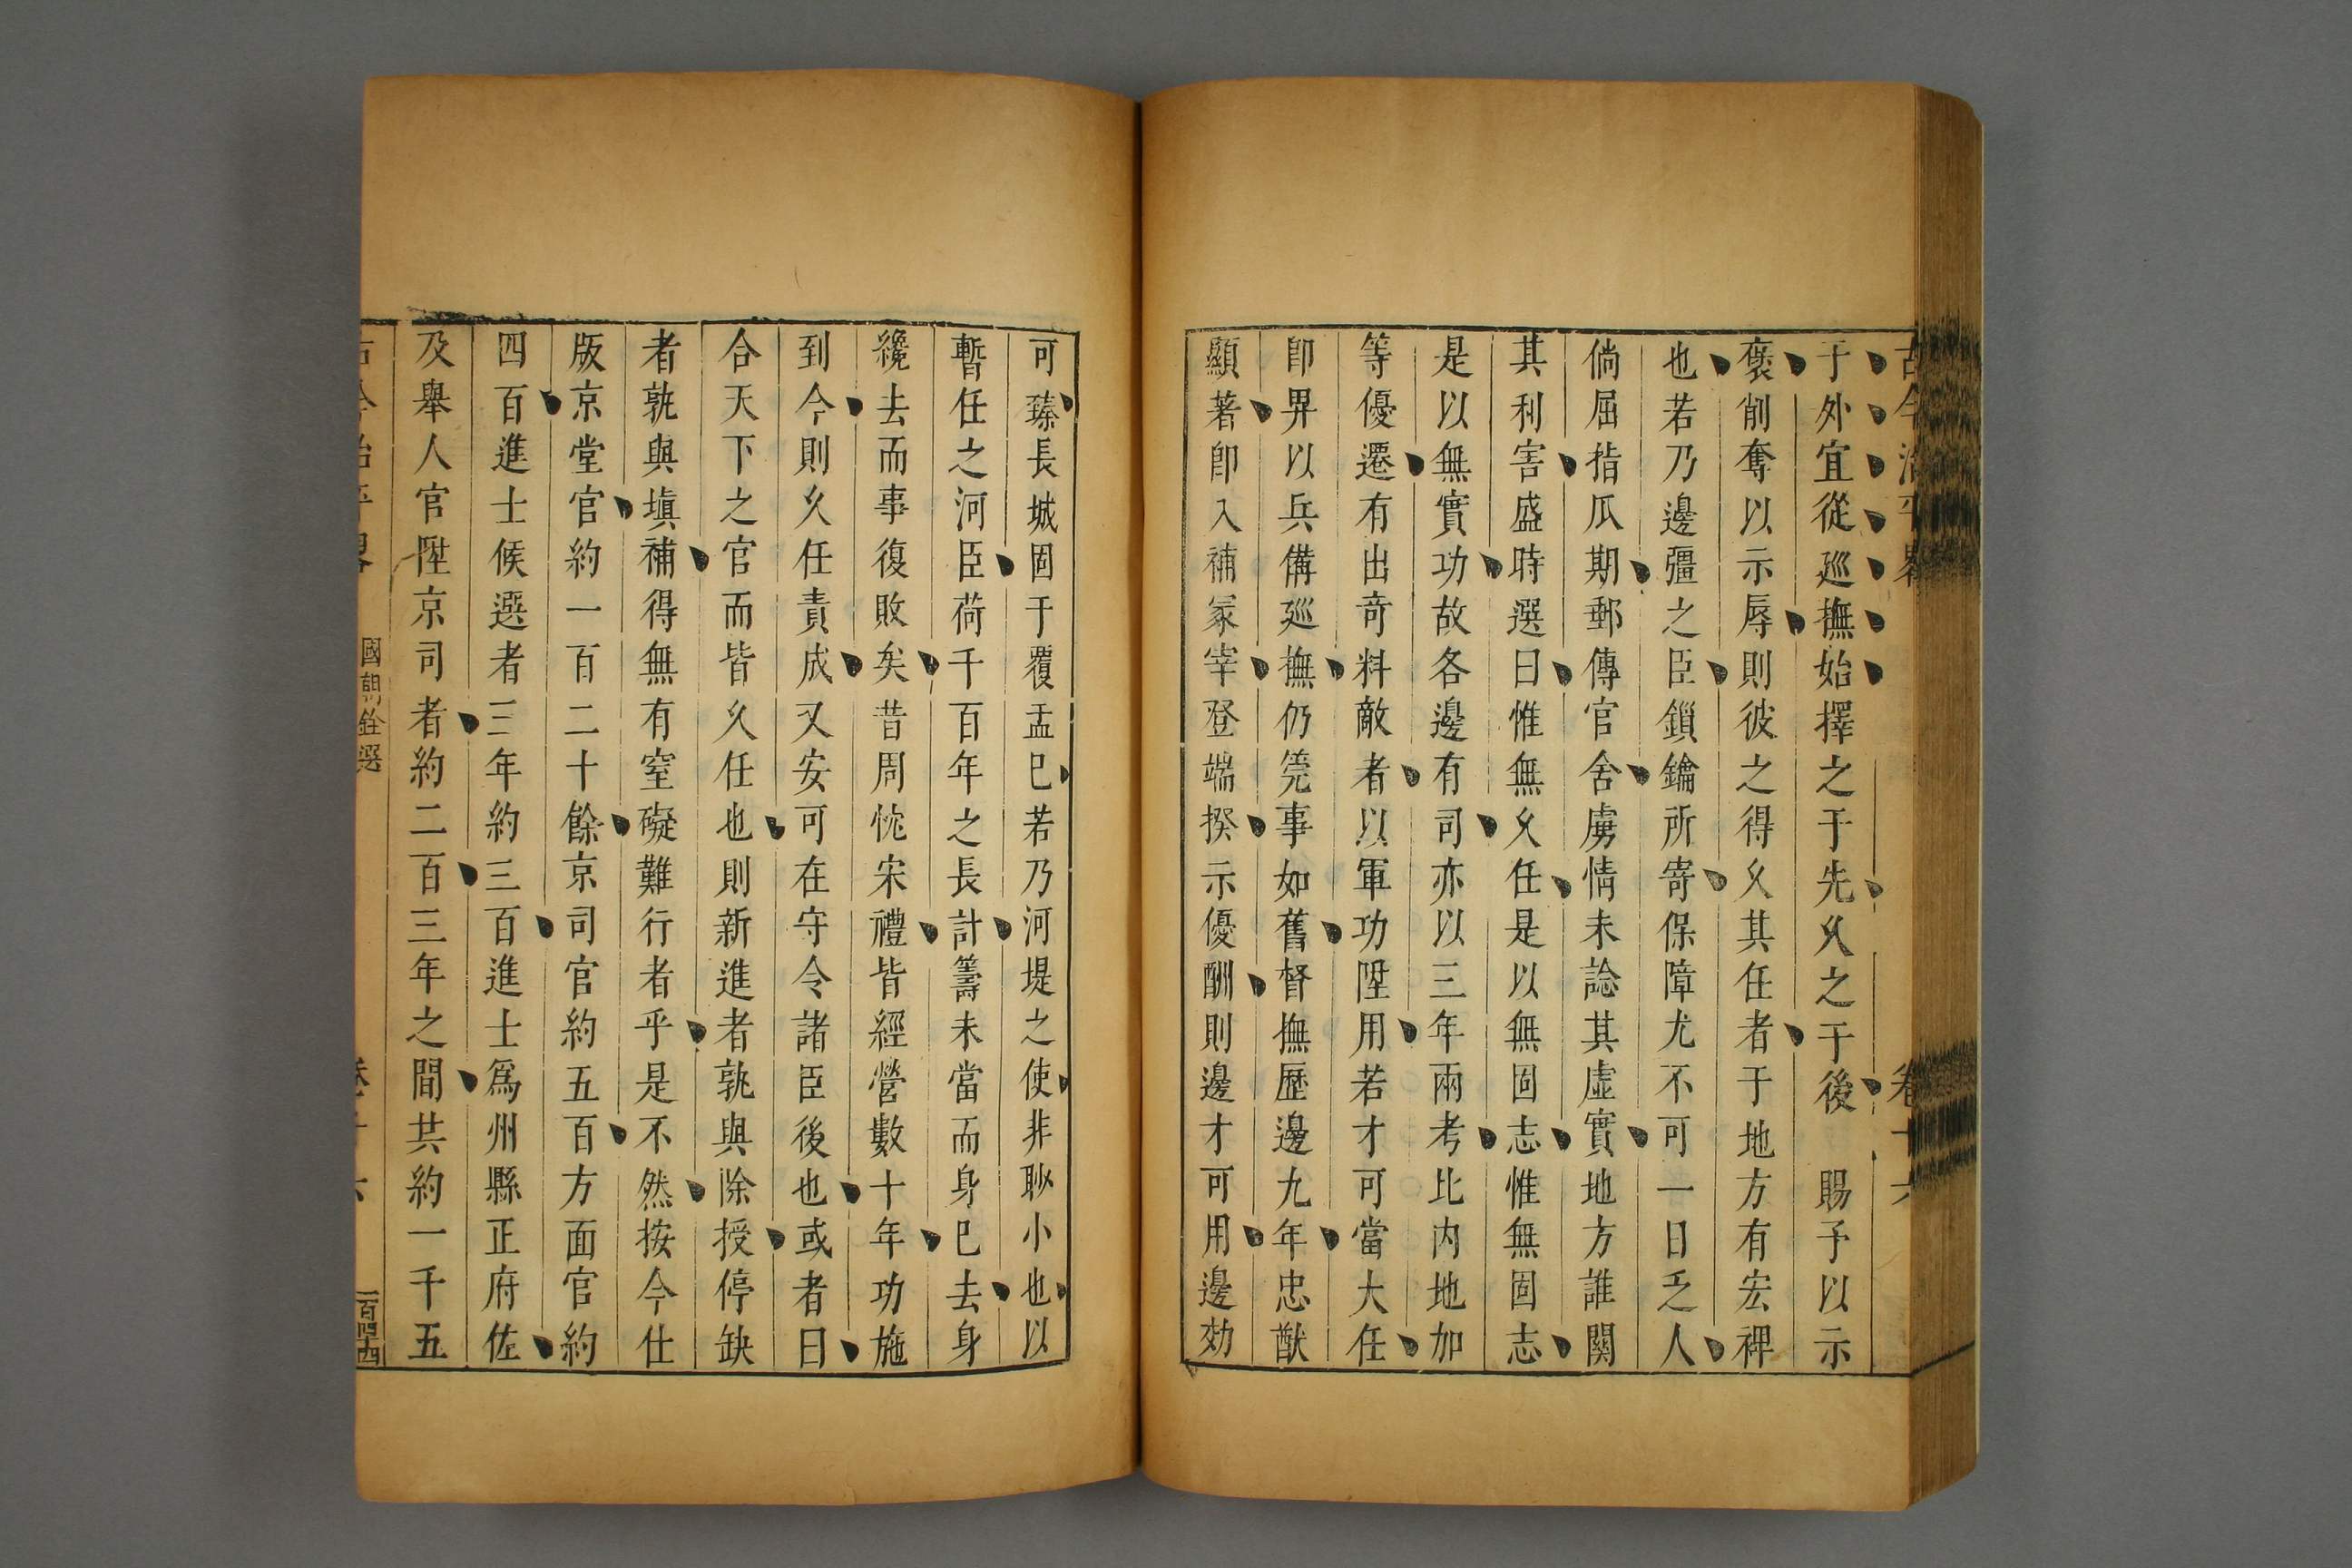 古今治平畧 卷十六
于外宜從廵撫始擇之于先久之于後 賜予以示
褒削奪以示辱則彼之得久其任者于地方有宏裨
也若乃邊彊之臣鎖鑰所寄保障尤不可一日乏人
倘屈指瓜期郵傳官舍虜情未諗其虛實地方誰關
其利害盛時選曰惟無久任是以無固志惟無固志
是以無實功故各邊有司亦以三年兩考比内地加
等優遷有出奇料敵者以軍功陞用若才可當大任
即畀以兵備廵撫仍筦事如舊督撫歷邊九年忠猷
顯著即入補冢宰登端揆示優酬則邊才可用邊効
可臻長城固于覆盂巳若乃河堤之使非眇小也以
暫任之河臣荷千百年之長計籌未當而身巳去身
纔去而事復敗矣昔周忱宋禮皆經營數十年功施
到今則久任責成又安可在守令諸臣後也或者曰
合天下之官而皆久任也則新進者孰與除授停缺
者孰與塡補得無有窒礙難行者乎是不然按今仕
版京堂官約一百二十餘京司官約五百方面官約
四百進士候選者三年約三百進士爲州縣正府佐
及舉人官陞京司者約二百三年之間共約一千五
古今治平畧 國朝銓選 卷十六 一百四十四